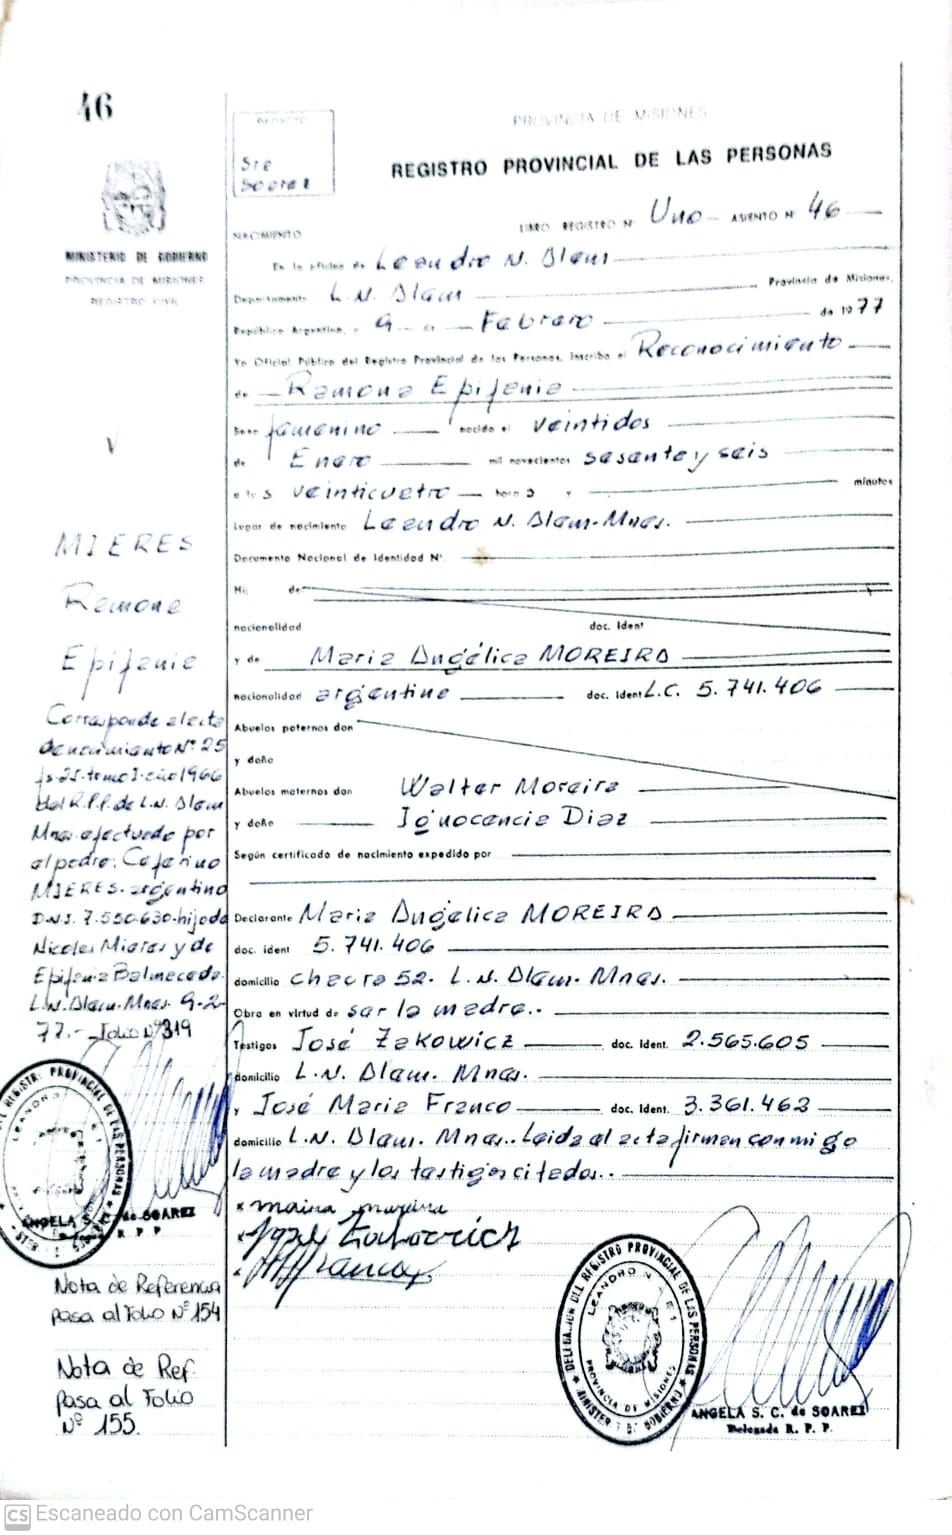 46
MINISTERIO DE GOBIERNO
PROVINCIA DE MISIONES
REGISTRO CIVIL
V
MIERES
Ramona
Epifania
Corresponde al acta
de nacimiento Nº 25
fs. 25. tomo I. año 1966
del R.P.P. de L.N. Alem
Mnes. efectuado por
el padre: Ceferino
MIERES. argentino
D.N.I. 7.550.630. hijo de
Nicoles Mieres y de
Epifania Balmaceda.
L.N. Alem. Mnes. 9-2-
77.- Folio Nº 319
ANGELA S. de SOAREZ
R. P. P.
Nota de Referencia
pasa al Folio Nº 154
Nota de Ref.
Pasa al Folio
Nº 155.
REDACTO
Sra
Soarez
PROVINCIA DE MISIONES
REGISTRO PROVINCIAL DE LAS PERSONAS
LIBRO REGISTRO Nº Uno - ASIENTO Nº 46
NACIMIENTO
En la oficina de Leandro N. Alem
Departamento L.N. Alem Provincia de Misiones,
República Argentina, a 9 de Febrero de 1977
Yo Oficial Público del Registro Provincial de las Personas, inscribo el Reconocimiento
de Ramona Epifania
Sexo femenino nacido el veintidos
de Enero mil novecientos sesenta y seis
a las veinticuatro horas y minutos
Lugar de nacimiento Leandro N. Alem-Mnes.
Documento Nacional de Identidad Nº.
Hij de
nacionalidad doc. ident
y de Maria Angélica MOREIRA
nacionalidad argentina doc. ident L.C. 5.741.406
Abuelos paternos don
y doña
Abuelos maternos don Walter Moreira
y doña Ignocencia Diaz
Según certificado de nacimiento expedido por
Declarante Maria Angélica MOREIRA
doc. ident 5.741.406
domicilio chacra 52. L.N. Alem. Mnes.
Obra en virtud de ser la madre..
Testigos José Zakowicz doc. Ident. 2.565.605
domicilio L.N. Alem. Mnes.
y José Maria Franco doc. Ident. 3.361.462
domicilio L.N. Alem. Mnes.. Leida el acta firman conmigo
la madre y los testigos citados..
DELEGACION DEL REGISTRO PROVINCIAL DE LAS PERSONAS
MINISTERIO DE GOBIERNO
PROVINCIA DE MISIONES
ANGELA S. C. de SOAREZ
Delegada R. P. P.
CS Escaneado con CamScanner